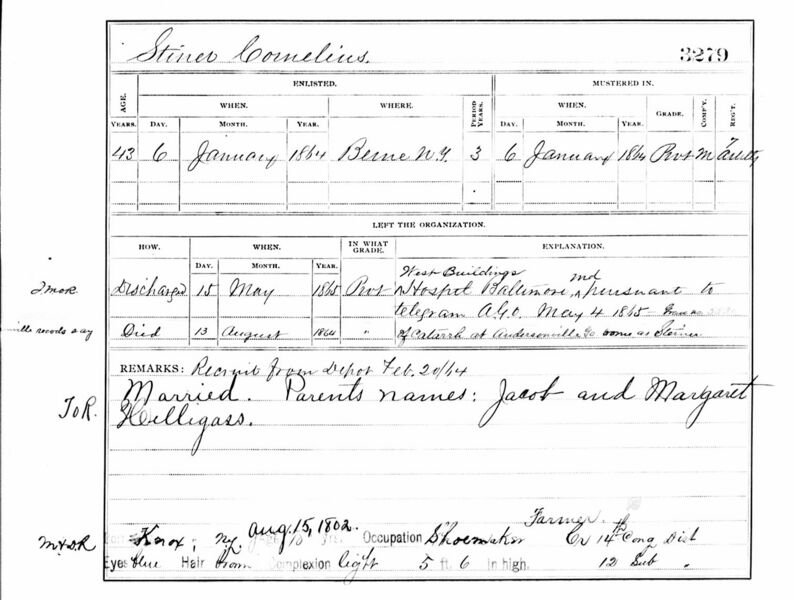 Stiner Cornelius. 3279
ENLISTED. MUSTERED IN.
AGE. WHEN. WHERE. PERIOD YEARS. WHEN. GRADE. COMP'Y. REG'T.
YEARS. DAY. MONTH. YEAR. DAY. MONTH. YEAR.
43 6 January 1864 Berne N.Y. 3 6 January 1864 Pvt M 7 Artilty
LEFT THE ORGANIZATION.
HOW. WHEN. IN WHAT GRADE. EXPLANATION.
DAY. MONTH. YEAR.
West Buildings
2 mor Discharged 15 May 1865 Pvt Hospt Baltimore Md, pursuant to
telegram A.G.O. May 4 1865
ville records say Died 13 August 1864 " of Catarrh at Andersonville Ga borne as Steiner
REMARKS: Recruit from Depot Feb. 20/64
Married. Parents names: Jacob and Margaret
ToR. Hilligass.
Farmer.
M&DR Knox, Ny Aug. 15, 1802. Occupation Shoemaker Cr 14th Cong Dist
Eyes blue Hair brom Complexion light 5 ft. 6 in high. 12 Sub "